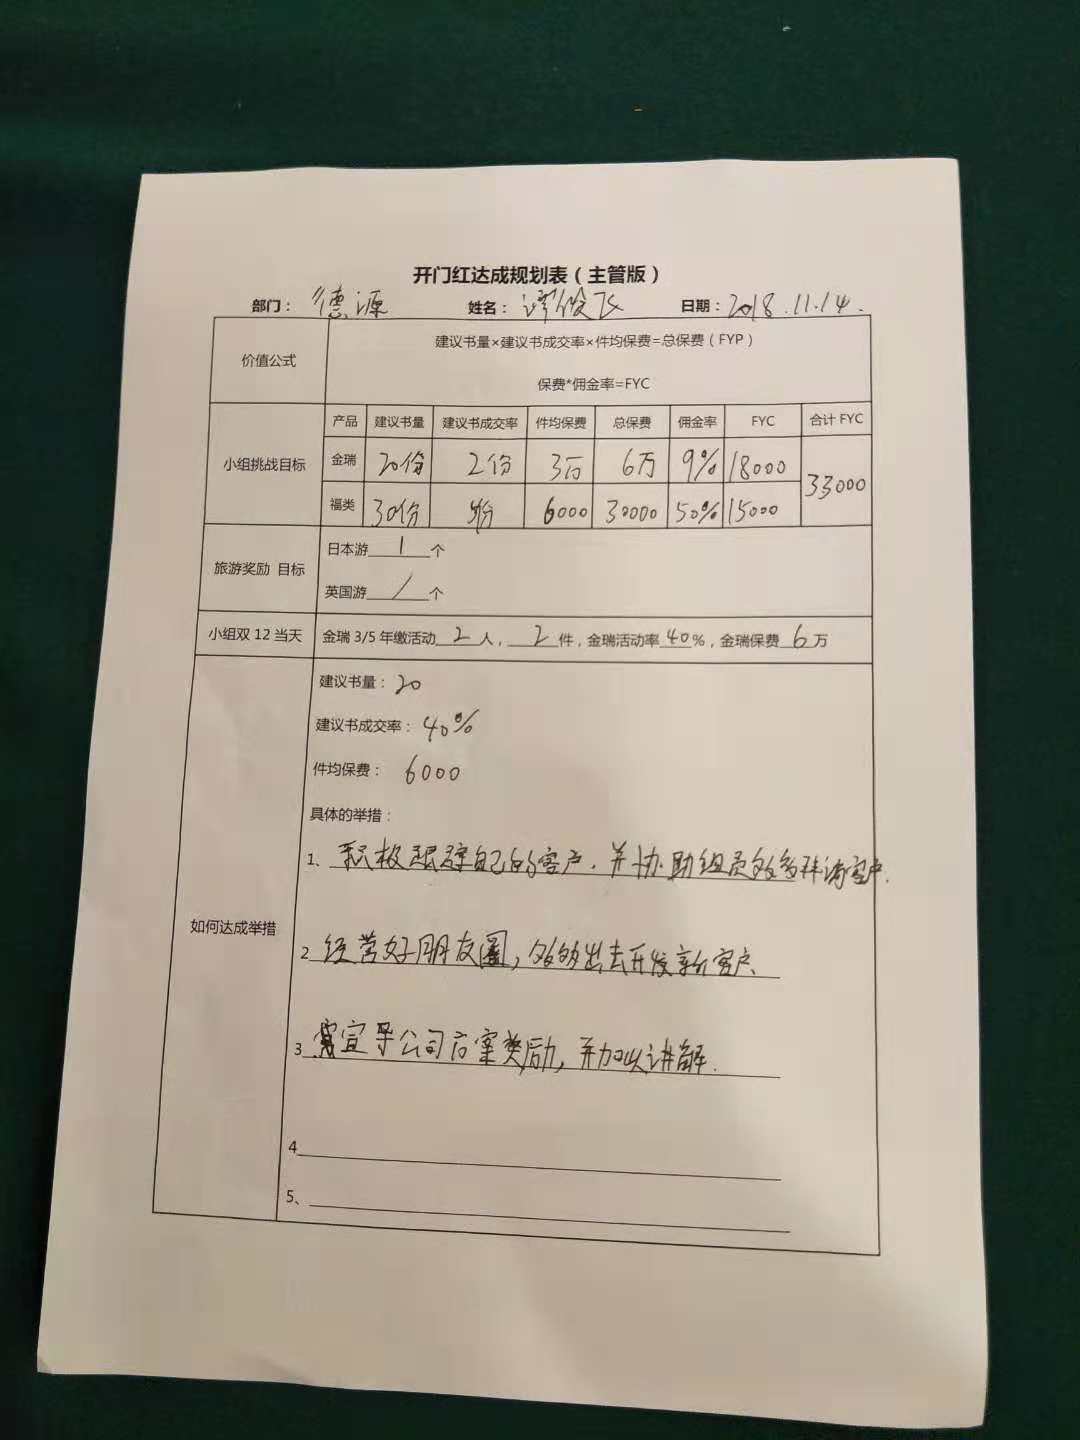 开门红达成规划表（主管版）
部门： 德源 姓名： 谭俊飞 日期：2018.11.14.
价值公式
建议书量×建议书成交率×件均保费=总保费（FYP）
保费*佣金率=FYC
小组挑战目标
产品 建议书量 建议书成交率 件均保费 总保费 佣金率 FYC 合计 FYC
金瑞 20份 2份 3万 6万 9% 18000 33000
福类 30份 6000 30000 50% 15000
旅游奖励 目标
日本游 1 个
英国游 / 个
小组双 12 当天 金瑞 3/5 年缴活动 2 人， 2 件，金瑞活动率 40 %，金瑞保费 6 万
如何达成举措
建议书量： 20
建议书成交率： 40%
件均保费： 6000
具体的举措：
1、 积极跟踪自己的客户.并协助组员多多拜访客户.
2 经营好朋友圈，多多出去开发新客户、
3 宣导公司方案奖励，并加以讲解.
4
5、